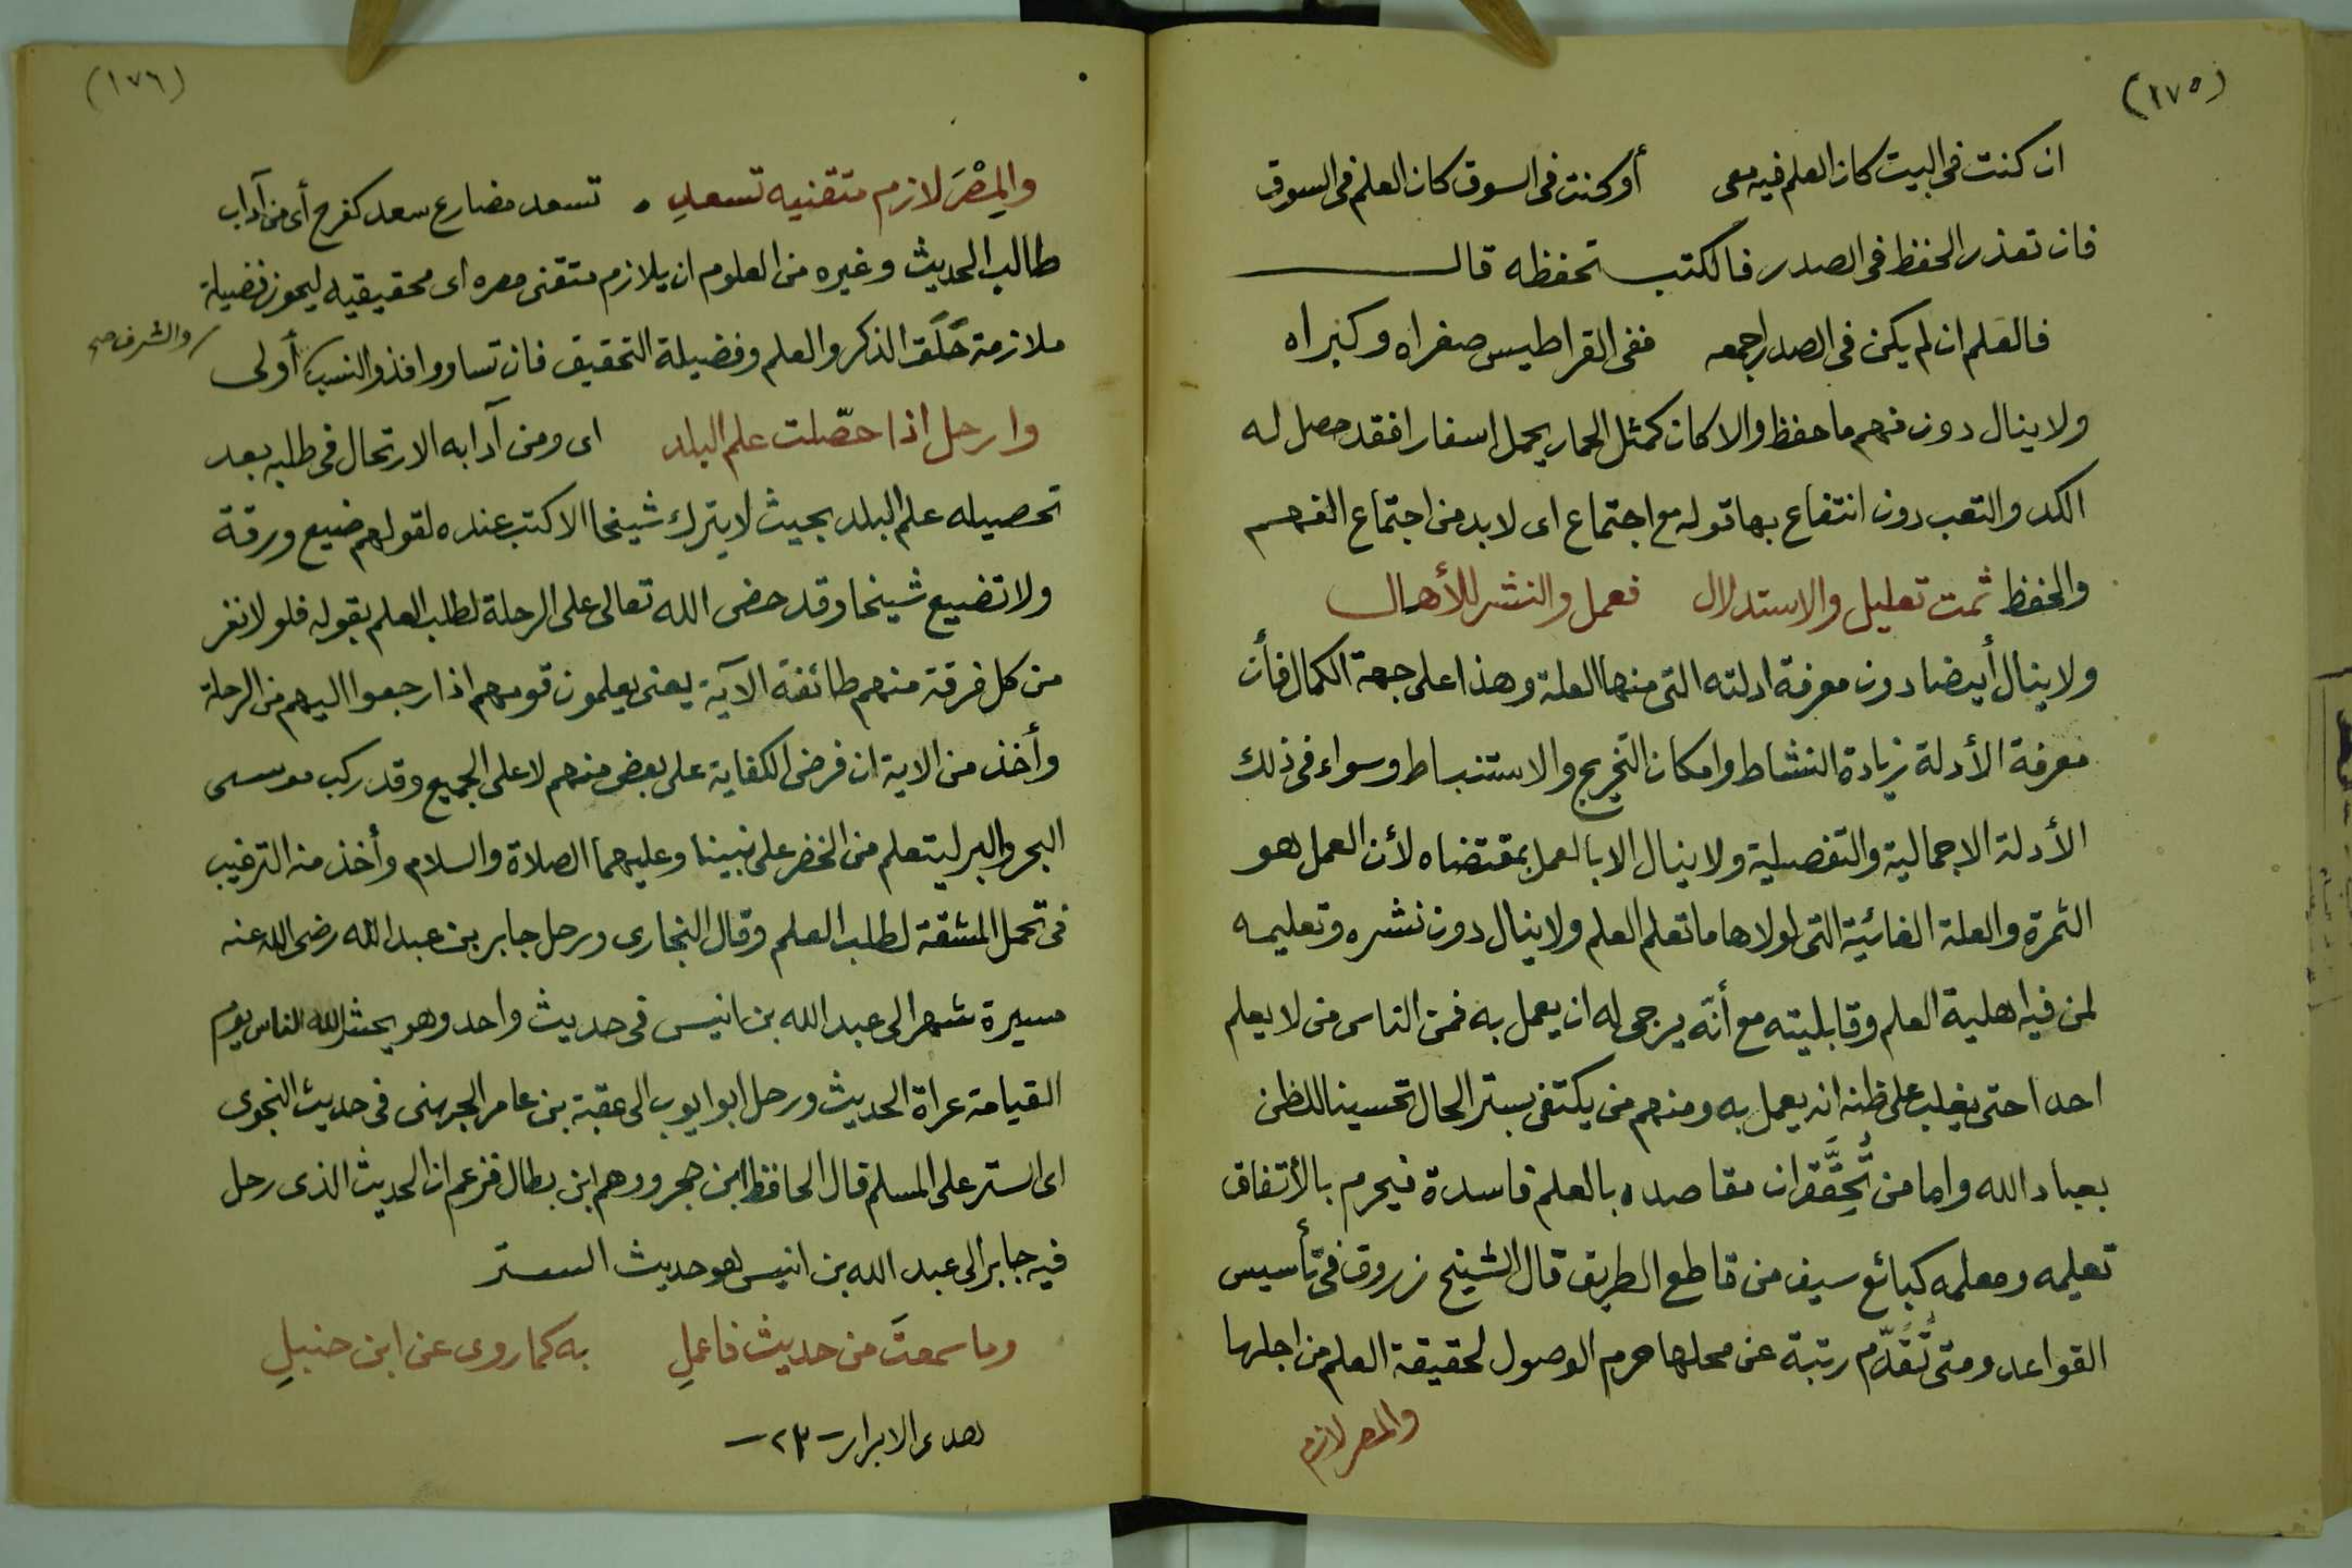 (١٧٥)
ان كنت فى البيت كان العلم فيه معى أو كنت فى السوق كان العلم فى السوق
فان تعذر الحفظ فى الصدر فالكتب تحفظه قال
فالعلم ان لم يكن فى الصدر اجمعه ففى القراطيس صغراه وكبراه
ولا ينال دون فهم ما حفظ والا كان كمثل الحمار يحمل اسفارا فقد حصل له
الكد والتعب دون انتفاع بها قوله مع اجتماع اى لا بد من اجتماع الفهم
والحفظ ثمت تعليل والاستدلال فعمل والنشر للأهال
ولا ينال أيضا دون معرفة ادلته التى منها العلة وهذا على جهة الكمال فأن
معرفة الأدلة زيادة النشاط وامكان التخريج والاستنباط وسواء فى ذلك
الأدلة الاجمالية والتفصيلية ولا ينال الا بالعمل بمقتضاه لأن العمل هو
الثمرة والعلة الغائية التى لولاها ما تعلم العلم ولا ينال دون نشره وتعليمه
لمن فيه اهلية العلم وقابليته مع أنّه يرجى له ان يعمل به فمن الناس من لا يعلم
احدا حتى يغلب على ظنه انه يعمل به ومنهم من يكتفى بستر الحال تحسينا للظن
بعباد الله واما من تُحِقَّقَ ان مقاصده بالعلم فاسدة فيحرم بالأتفاق
تعليمه ومعلمه كبائع سيف من قاطع الطريق قال الشيخ زروق فى تأسيس
القواعد ومتى تُقُدِّم رتبة عن محلها حرم الوصول لحقيقة العلم من اجلها
والمصر لازم
(١٧٦)
والمِصْرَ لازم متقنيه تسعدِ . تسعد مضارع سعد كفرح أى من آداب
طالب الحديث وغيره من العلوم ان يلازم متقنى مصره اى محقيقيه ليحوز فضيلة
ملازمة حَلَق الذكر والعلم وفضيلة التحقيق فان تساووا فذو النسب أولى
والشرف صح
وارحل اذا حصّلت علم البلد اى ومن آدابه الارتحال فى طلبه بعد
تحصيله علم البلد بحيث لا يترك شيخا الا كتب عنده لقولهم ضيع ورقة
ولا تضييع شيخا وقد حض الله تعالى على الرحلة لطلب العلم بقوله فلولا نفر
من كل فرقة منهم طائفة الآية يعنى يعلمون قومهم اذا رجعوا اليهم من الرحلة
وأخذ من الاية ان فرض الكفاية على بعض منهم لا على الجميع وقد ركب موسى
البحر والبر ليتعلم من الخضر على نبينا وعليهما الصلاة والسلام وأخذ منه الترغيب
فى تحمل المشقة لطلب العلم وقال البخارى ورحل جابر بن عبد الله رضى الله عنه
مسيرة شهر الى عبد الله بن انيس فى حديث واحد وهو يحشر الله الناس يوم
القيامة عراة الحديث ورحل ابو ايوب الى عقبة بن عامر الجهنى فى حديث النجوى
اى الستر على المسلم قال الحافظ ابن حجر ووهم ابن بطال فزعم ان الحديث الذى رحل
فيه جابر الى عبد الله بن انيس هو حديث الستر
وما سمعتَ من حديث فاعملِ به كما روى عن ابن حنبلِ
هدى الابرار - ٢٣ -